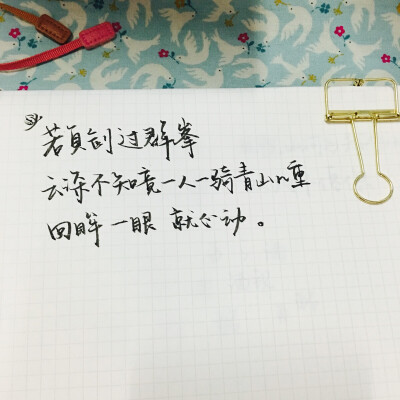 若負剑过群峯
云深不知竟一人一骑青山几重
回眸一眼 就心动。